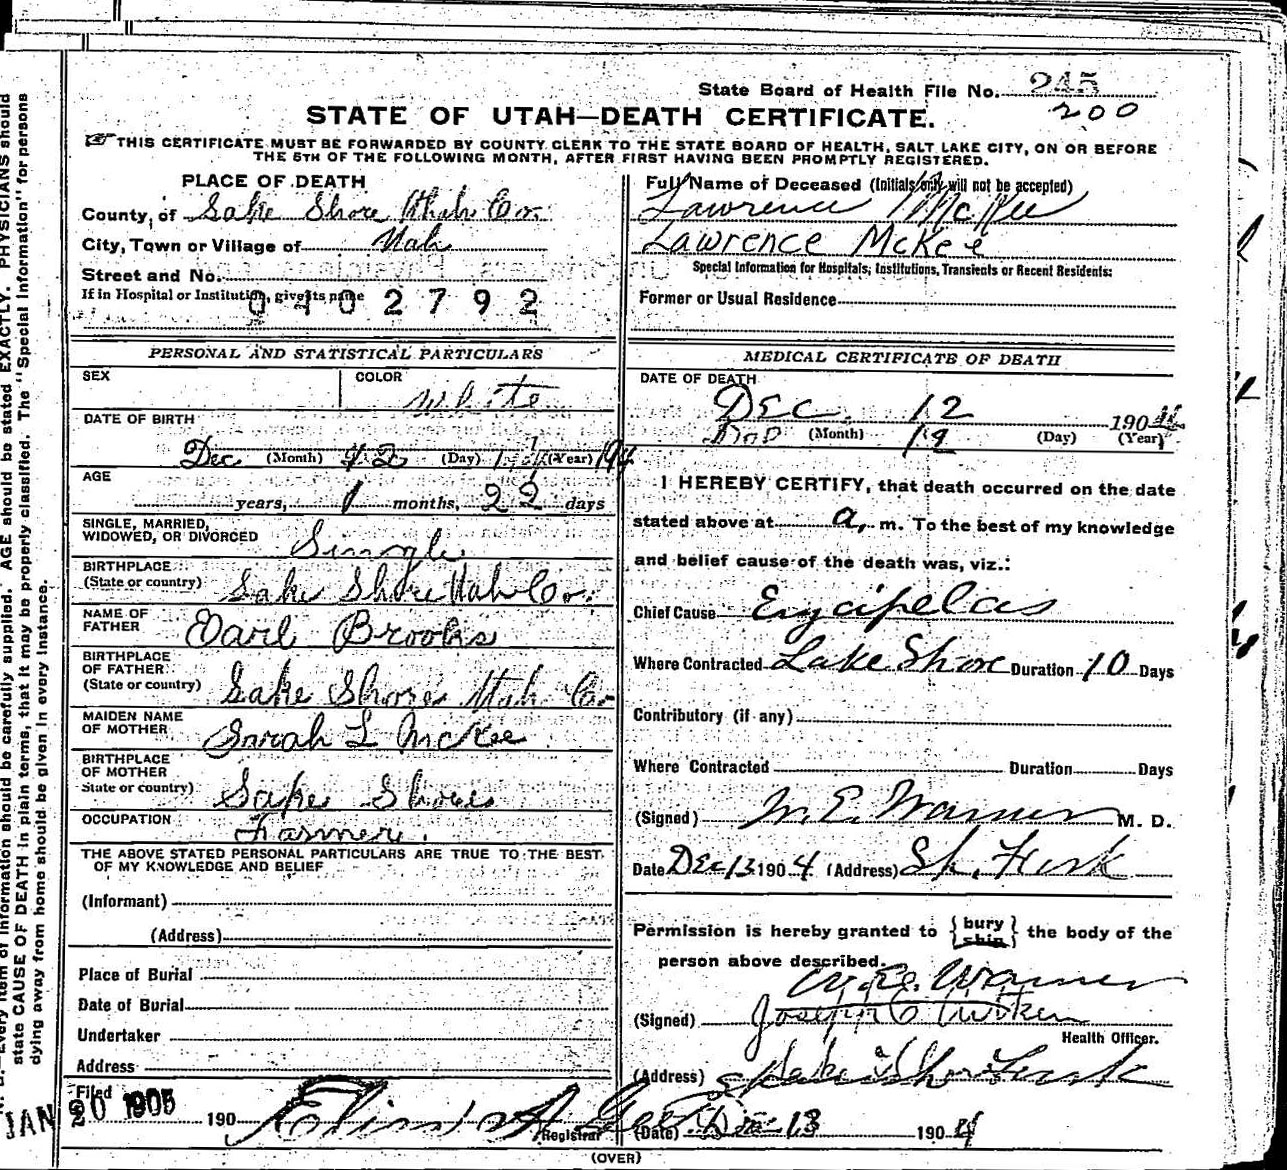 State Board of Health File No. 245
200
STATE OF UTAH—DEATH CERTIFICATE.
THIS CERTIFICATE MUST BE FORWARDED BY COUNTY CLERK TO THE STATE BOARD OF HEALTH, SALT LAKE CITY, ON OR BEFORE
THE 5TH OF THE FOLLOWING MONTH, AFTER FIRST HAVING BEEN PROMPTLY REGISTERED.
PLACE OF DEATH
County of Lake Shore Utah Co.
City, Town or Village of Utah
Street and No.
If in Hospital or Institution, give its name
0402792
Full Name of Deceased (Initials only will not be accepted)
Lawrence McKee
Lawrence McKee
Special Information for Hospitals, Institutions, Transients or Recent Residents:
Former or Usual Residence
PERSONAL AND STATISTICAL PARTICULARS
SEX
COLOR White
DATE OF BIRTH
Dec (Month) (Day) (Year)
AGE
years, 1 months, 22 days
SINGLE, MARRIED,
WIDOWED, OR DIVORCED Single
BIRTHPLACE
(State or country) Lake Shore Utah Co.
NAME OF
FATHER Earl Brooks
BIRTHPLACE
OF FATHER
(State or country) Lake Shore Utah Co
MAIDEN NAME
OF MOTHER Sarah L McKee
BIRTHPLACE
OF MOTHER
State or country) Lake Shore
OCCUPATION Farmer.
THE ABOVE STATED PERSONAL PARTICULARS ARE TRUE TO THE BEST
OF MY KNOWLEDGE AND BELIEF
(Informant)
(Address)
Place of Burial
Date of Burial
Undertaker
Address
Filed
JAN 20 1905 190
Registrar
MEDICAL CERTIFICATE OF DEATH
DATE OF DEATH
Dec 12 1904
12
(Month) (Day) (Year)
I HEREBY CERTIFY, that death occurred on the date
stated above at a, m. To the best of my knowledge
and belief cause of the death was, viz.:
Chief Cause Erycipelas
Where Contracted Lake Shore Duration 10 Days
Contributory (if any)
Where Contracted Duration Days
(Signed) W. E. Warner M. D.
Date Dec 13 1904 (Address) Sp. Fork
Permission is hereby granted to {bury ship} the body of the
person above described.
W. E. Warner
(Signed) Joseph
Health Officer.
(Address)
(Date) Dec 13 1904
(OVER)
Every item of information should be carefully supplied. AGE should be stated EXACTLY. PHYSICIANS should
state CAUSE OF DEATH in plain terms, that it may be properly classified. The "Special Information" for persons
dying away from home should be given in every instance.